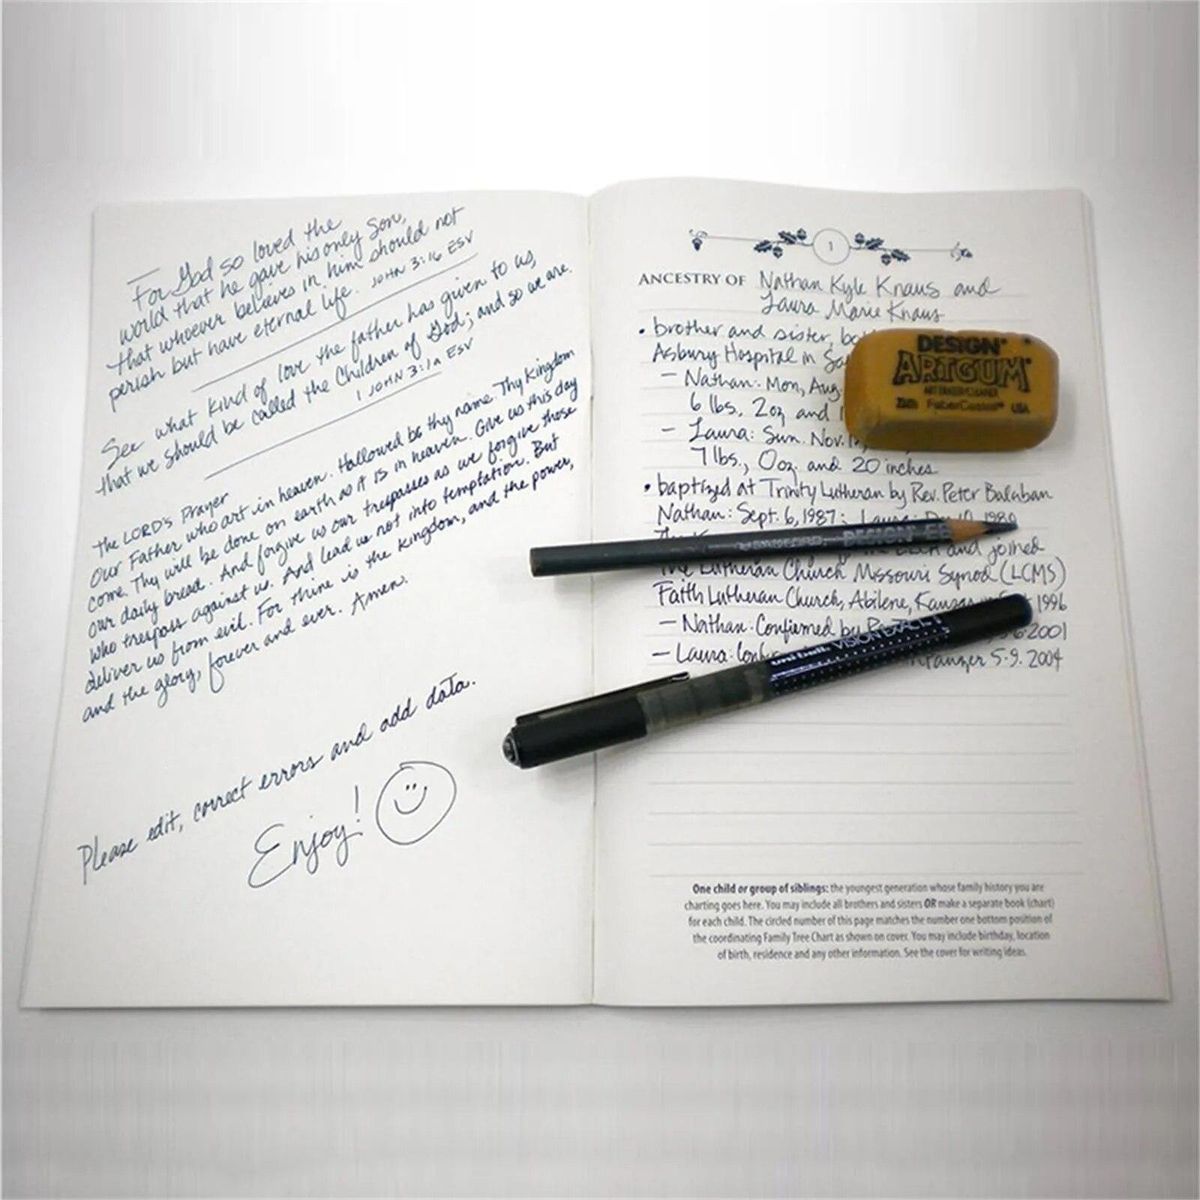 For God so loved the
world that he gave his only Son,
that whoever believes in him should not
perish but have eternal life. JOHN 3:16 ESV
See what kind of love the father has given to us,
that we should be called the Children of God; and so we are.
1 JOHN 3:1a ESV
The LORD's Prayer
Our Father who art in heaven. Hallowed be thy name. Thy Kingdom
come. Thy will be done on earth as it is in heaven. Give us this day
our daily bread. And forgive us our trespasses as we forgive those
who trespass against us. And lead us not into temptation. But
deliver us from evil. For thine is the Kingdom, and the power,
and the glory, forever and ever. Amen.
Please edit, correct errors and add data.
Enjoy!
1
ANCESTRY OF Nathan Kyle Knaus and
Laura Marie Knaus
• brother and sister,
Asbury Hospital in
- Nathan: Mon, Aug.
6 lbs, 2oz and
- Laura: Sun. Nov.
7 lbs., 0oz. and 20 inches
• baptized at Trinity Lutheran by Rev. Peter Balaban
Nathan: Sept. 6, 1987; Laura:
and joined
The Lutheran Church Missouri Synod (LCMS)
Faith Lutheran Church, Abilene, Kansas 1996
- Nathan: Confirmed by 2001
- Laura: 5-9-2004
DESIGN
ARTGUM
FaberCastell USA
DESIGN
uni-ball VISION EXACT
One child or group of siblings: the youngest generation whose family history you are
charting goes here. You may include all brothers and sisters OR make a separate book (chart)
for each child. The circled number of this page matches the number one bottom position of
the coordinating Family Tree Chart as shown on cover. You may include birthday, location
of birth, residence and any other information. See the cover for writing ideas.